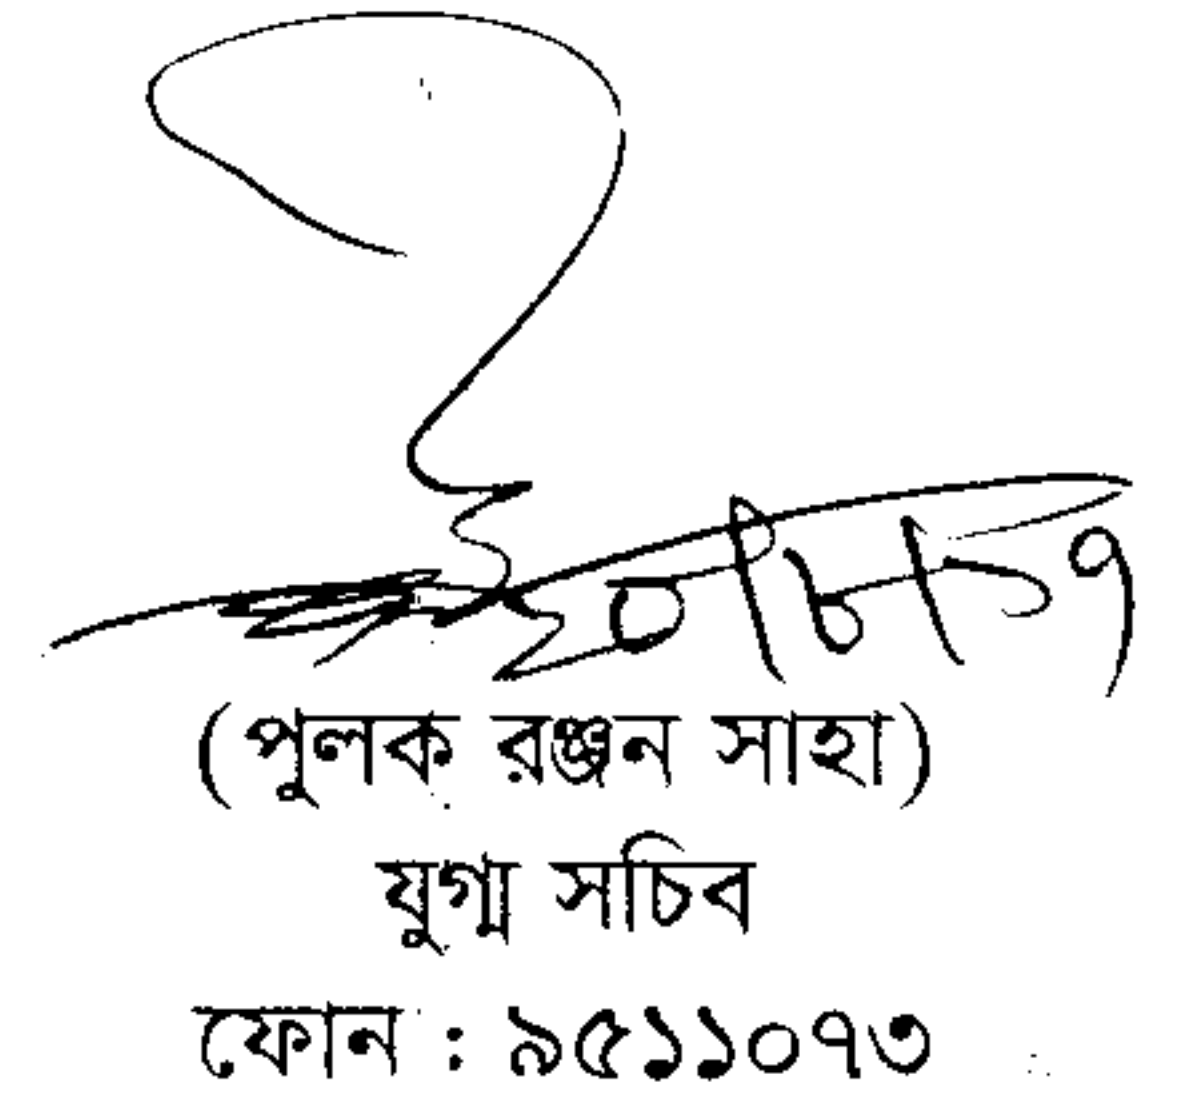 ২০/৮/১৭
(পুলক রঞ্জন সাহা)
যুগ্ম সচিব
ফোন : ৯৫১১০৭৩